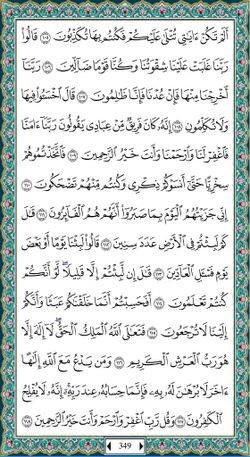 أَلَمْ تَكُنْ ءَايَٰتِى تُتْلَىٰ عَلَيْكُمْ فَكُنتُم بِهَا تُكَذِّبُونَ ١٠٥ قَالُوا۟
رَبَّنَا غَلَبَتْ عَلَيْنَا شِقْوَتُنَا وَكُنَّا قَوْمًا ضَآلِّينَ ١٠٦ رَبَّنَآ
أَخْرِجْنَا مِنْهَا فَإِنْ عُدْنَا فَإِنَّا ظَٰلِمُونَ ١٠٧ قَالَ ٱخْسَـُٔوا۟ فِيهَا
وَلَا تُكَلِّمُونِ ١٠٨ إِنَّهُۥ كَانَ فَرِيقٌ مِّنْ عِبَادِى يَقُولُونَ رَبَّنَآ ءَامَنَّا
فَٱغْفِرْ لَنَا وَٱرْحَمْنَا وَأَنتَ خَيْرُ ٱلرَّٰحِمِينَ ١٠٩ فَٱتَّخَذْتُمُوهُمْ
سِخْرِيًّا حَتَّىٰٓ أَنسَوْكُمْ ذِكْرِى وَكُنتُم مِّنْهُمْ تَضْحَكُونَ ١١٠
إِنِّى جَزَيْتُهُمُ ٱلْيَوْمَ بِمَا صَبَرُوٓا۟ أَنَّهُمْ هُمُ ٱلْفَآئِزُونَ ١١١ قَٰلَ
كَمْ لَبِثْتُمْ فِى ٱلْأَرْضِ عَدَدَ سِنِينَ ١١٢ قَالُوا۟ لَبِثْنَا يَوْمًا أَوْ بَعْضَ
يَوْمٍ فَسْـَٔلِ ٱلْعَآدِّينَ ١١٣ قَٰلَ إِن لَّبِثْتُمْ إِلَّا قَلِيلًا لَّوْ أَنَّكُمْ
كُنتُمْ تَعْلَمُونَ ١١٤ أَفَحَسِبْتُمْ أَنَّمَا خَلَقْنَٰكُمْ عَبَثًا وَأَنَّكُمْ
إِلَيْنَا لَا تُرْجَعُونَ ١١٥ فَتَعَٰلَى ٱللَّهُ ٱلْمَلِكُ ٱلْحَقُّ لَآ إِلَٰهَ إِلَّا
هُوَ رَبُّ ٱلْعَرْشِ ٱلْكَرِيمِ ١١٦ وَمَن يَدْعُ مَعَ ٱللَّهِ إِلَٰهًا
ءَاخَرَ لَا بُرْهَٰنَ لَهُۥ بِهِۦ فَإِنَّمَا حِسَابُهُۥ عِندَ رَبِّهِۦٓ إِنَّهُۥ لَا يُفْلِحُ
ٱلْكَٰفِرُونَ ١١٧ وَقُل رَّبِّ ٱغْفِرْ وَٱرْحَمْ وَأَنتَ خَيْرُ ٱلرَّٰحِمِينَ ١١٨
349